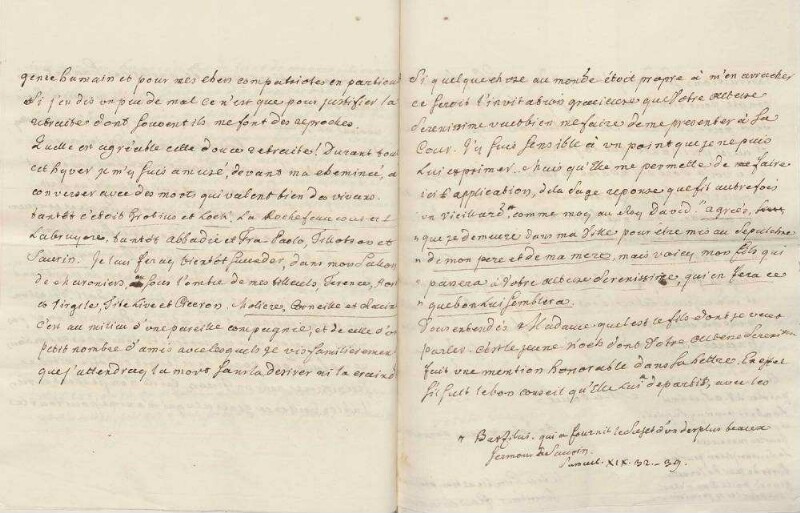 genre humain et pour mes chers compatriotes en particu
Si j'en dis un peu de mal ce n'est que pour justifier la
retraite dont souvent ils me font des reproches.
Quelle est agréable cette douce retraite! Durant tout
cet hyver je m'y suis amusé, devant ma cheminée, à
converser avec des morts qui valent bien des vivans.
tantôt c'étoit Grotius et Lock, La Rochefoucaut et
Labruyere, tantôt Abbadie et Fra Paolo, Tillotson et
Saurin. Je leur feray bientôt succeder, dans mon Sallon
de Maroniers, sous l'ombre de mes tilleuls, Terence,
Virgile, Tite Live et Ciceron, Moliere, Corneille et Racin
C'en au milieu d'une pareille compagnie, et de celle d'un
petit nombre d'amis avec lesquels je vis familierement
que j'attendray la mort sans la desirer ni la craind
Si quelque chose au monde étoit propre à m'en arracher
ce seroit l'invitation gracieuse que Votre Altesse
Serenissime veut bien me faire de me presenter à Sa
Cour. J'y suis sensible à un point que je ne puis
Lui exprimer. Mais qu'Elle me permette de me faire
ici l'application, de la sage reponse que fit autrefois
un vieillard comme moy au Roy David "agréés,
" que je demeure dans ma Ville pour etre mis au Sepulchre
" de mon pere et de ma mere, mais voicy mon fils qui
" passera à Votre Altesse Serenissime, qui en fera ce
que bon Lui semblera.
Vous entendés Madame quel est le fils dont je veux
parler. C'est le jeune dont Votre Altesse Sereniss
fait une mention honorable dans Sa Lettre. En effet
S'il suit le bon conseil qu'Elle Lui departit, avec les
Barzillai qui a fournit le Sujet d'un des plus beaux
Sermons de Saurin.
Samuel. XIX. 32-39.